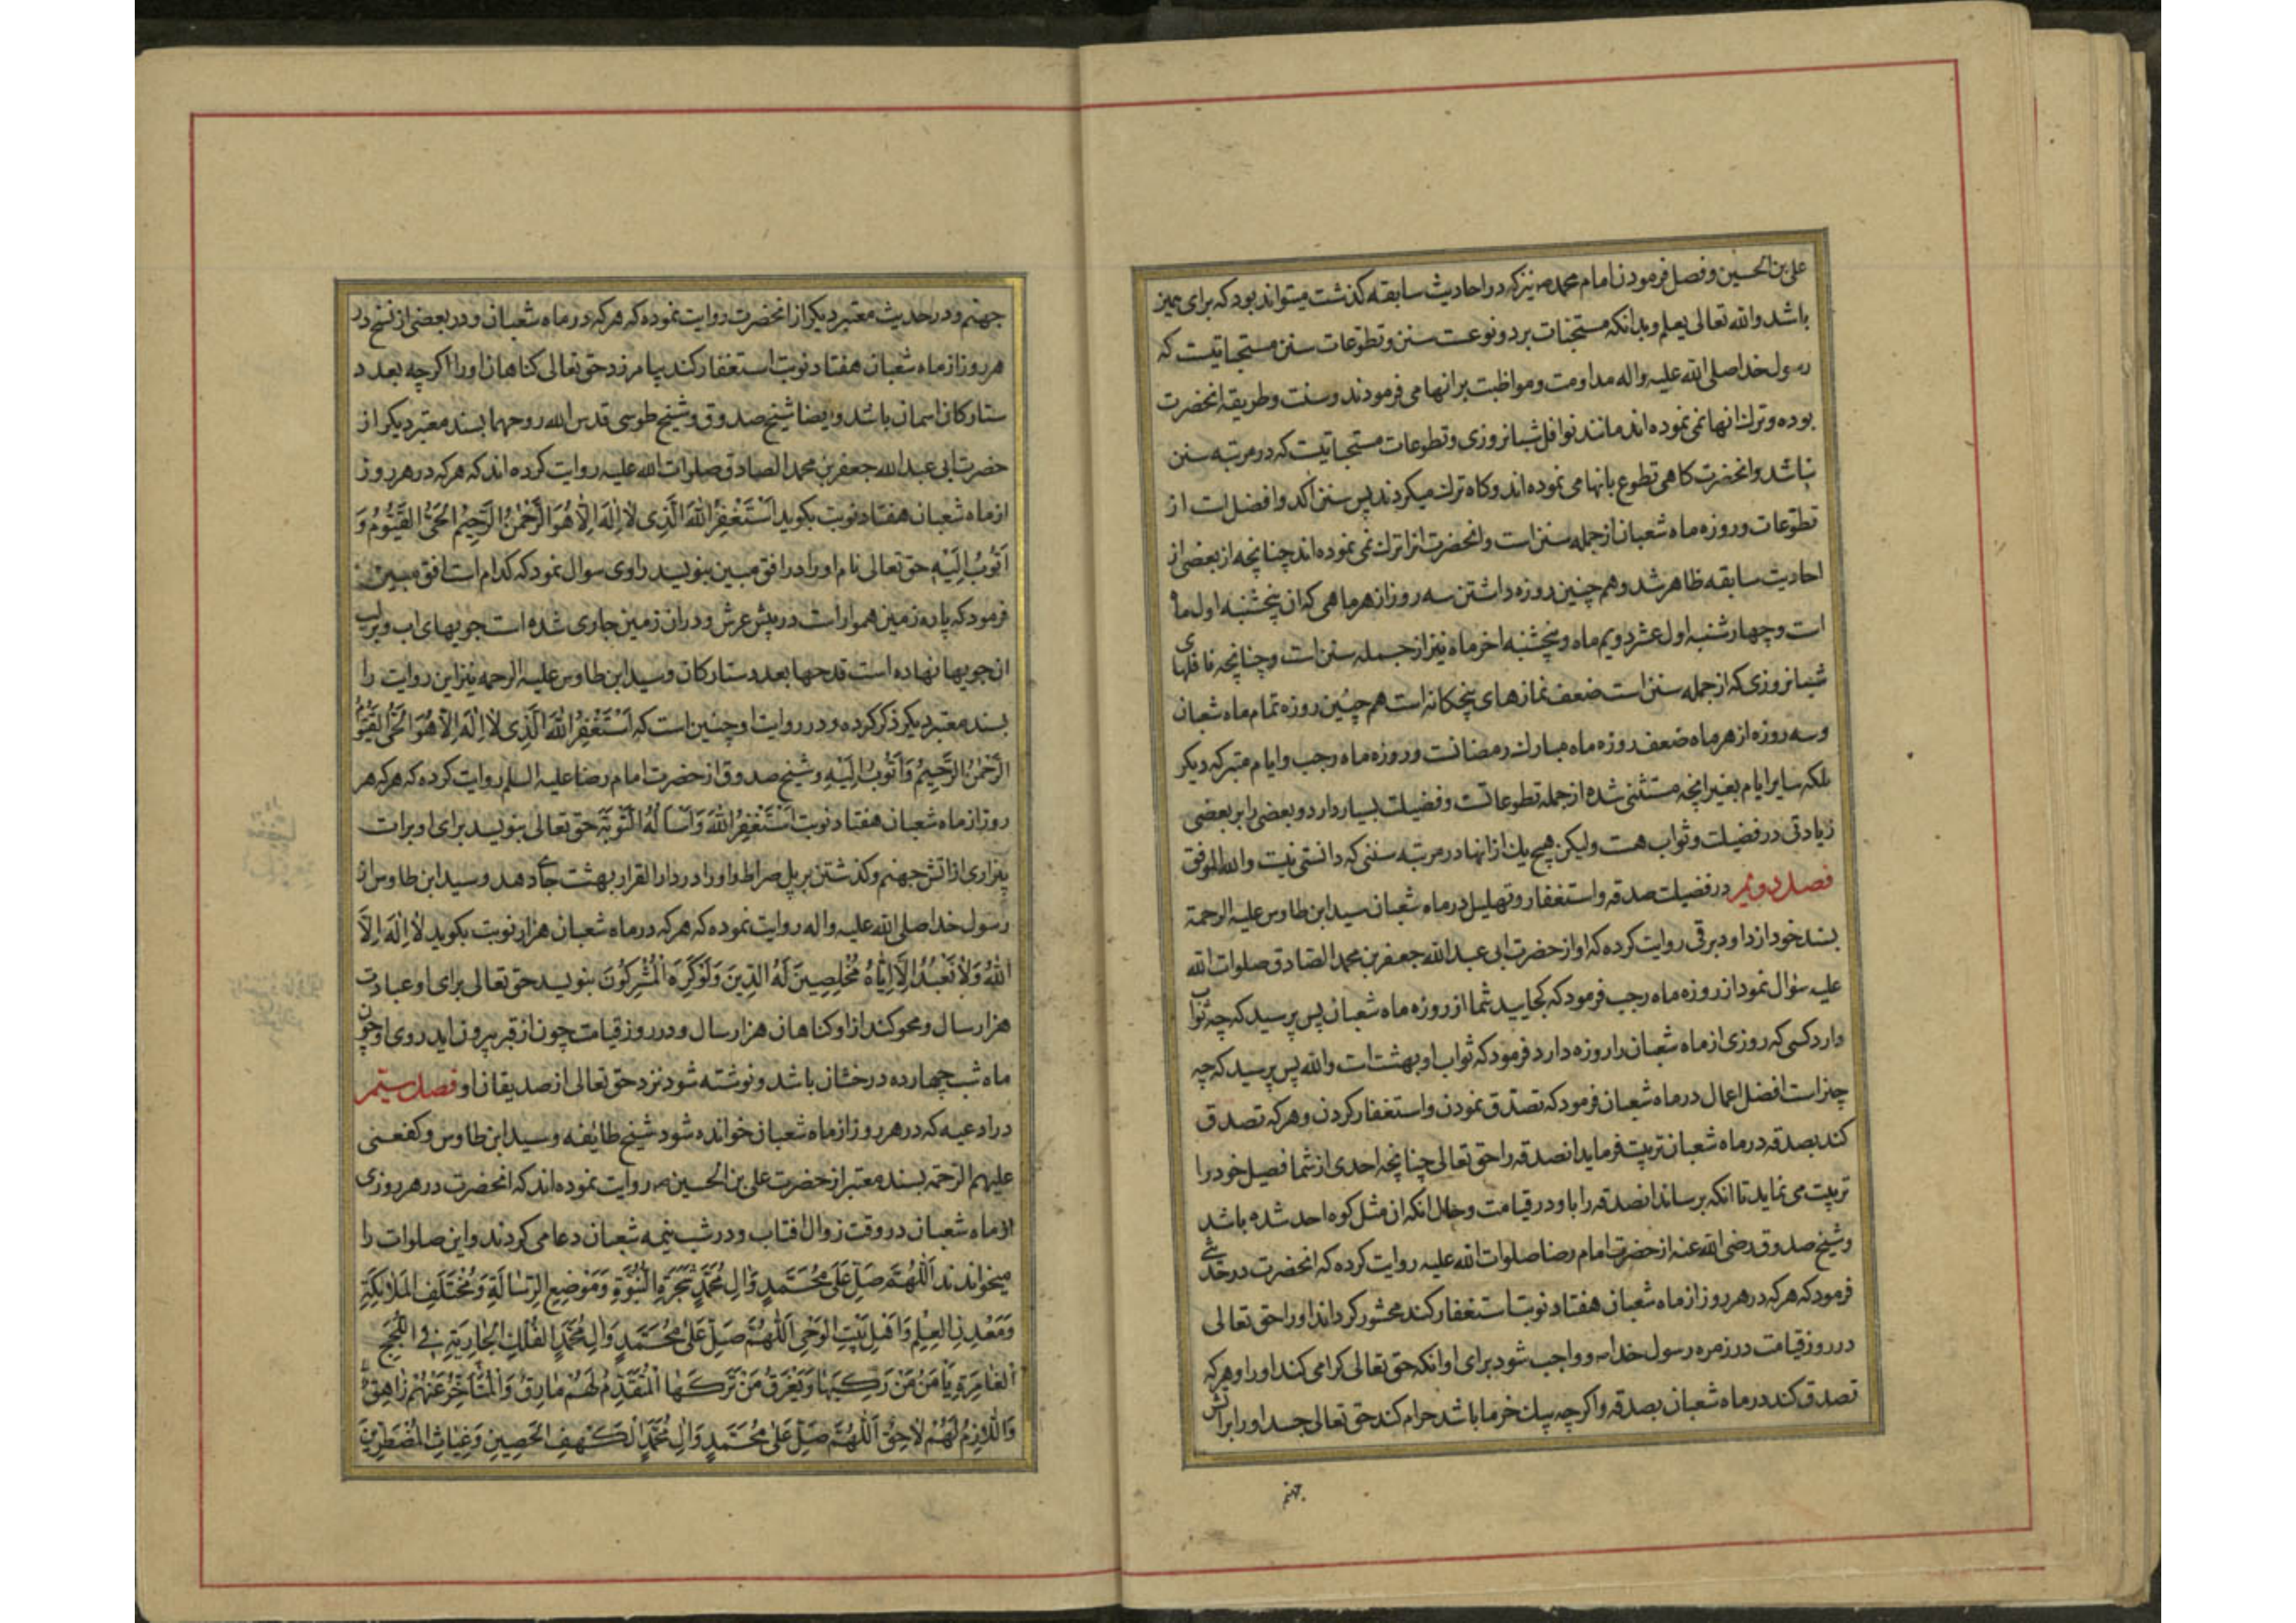 علی بن الحسین و فصل فرمودن امام محمد ص نیز که در احادیث سابقه کذشت میتواند بود که برای همین
باشد والله تعالی یعلم و بدانکه مستحبات بر دو نوعست سنن و تطوعات سنن مستحباتیست که
رسول خدا صلی الله علیه واله مداومت و مواظبت بر انها می فرمودند و سنت و طریقه انحضرت
بوده و ترک انها نمی نموده اند مانند نوافل شبانروزی و تطوعات مستحباتیست که در مرتبه سنن
نباشد و انحضرت کاهی تطوع بانها می نموده اند و کاه ترک میکردند پس سنن اکد و افضل است از
تطوعات و روزه ماه شعبان از جمله سنن است و انحضرت انرا ترک نمی نموده اند چنانچه از بعضی از
احادیث سابقه ظاهر شد و هم چنین روزه داشتن سه روز از هر ماهی که ان پنجشنبه اول ماه
است و چهارشنبه اول عشر دویم ماه و پنجشنبه اخر ماه نیز از جمله سنن است و چنانچه نافلهای
شبانروزی که از جمله سنن است ضعف نمازهای پنجکانه است هم چنین روزه تمام ماه شعبان
و سه روزه از هر ماه ضعف روزه ماه مبارک رمضانست و روزه ماه رجب و ایام متبرکه دیکر
بلکه سایر ایام بغیر انچه مستثنی شده از جمله تطوعاتست و فضیلت بسیار دارد و بعضی را بر بعضی
زیادتی در فضیلت و ثواب هست ولیکن هیچ یک از انها در مرتبه سننی که دانستی نیست والله الموفق
فصل دویم در فضیلت صدقه و استغفار و تهلیل در ماه شعبان سید ابن طاوس علیه الرحمة
بسند خود از داود برقی روایت کرده که او از حضرت ابی عبد الله جعفر بن محمد الصادق صلوات الله
علیه سؤال نمود از روزه ماه رجب فرمود که کجایید شما از روزه ماه شعبان پس پرسید که چه ثواب
دارد کسی که روزی از ماه شعبان را روزه دارد فرمود که ثواب او بهشت است والله پس پرسید که چه
چیز است افضل اعمال در ماه شعبان فرمود که تصدق نمودن و استغفار کردن و هر که تصدق
کند بصدقه در ماه شعبان تربیت فرماید انصدقه را حق تعالی چنانچه احدی از شما فصیل خود را
تربیت می نماید تا انکه برساند انصدقه را باو در قیامت و حال انکه ان مثل کوه احد شده باشد
و شیخ صدوق رضی الله عنه از حضرت امام رضا صلوات الله علیه روایت کرده که انحضرت در حدیثی
فرمود که هر که در هر روز از ماه شعبان هفتاد نوبت استغفار کند محشور کرداند او را حق تعالی
در روز قیامت در زمره رسول خدا ص و واجب شود برای او انکه حق تعالی کرامی کند او را و هر که
تصدق کند در ماه شعبان بصدقه و اکرچه بیک خرما باشد حرام کند حق تعالی جسد او را بر اتش
جهنم
جهنم و در حدیث معتبر دیکر از انحضرت روایت نموده که هر که در ماه شعبان و در بعضی از نسخ در
هر روز از ماه شعبان هفتاد نوبت استغفار کند بیامرزد حق تعالی کناهان او را اکرچه بعدد
ستارکان اسمان باشد و ایضا شیخ صدوق و شیخ طوسی قدس الله روحهما بسند معتبر دیکر از
حضرت ابی عبد الله جعفر بن محمد الصادق صلوات الله علیه روایت کرده اند که هر که در هر روز
از ماه شعبان هفتاد نوبت بکوید اَسْتَغْفِرُ اللهَ الَّذِی لا اِلٰهَ اِلّا هُوَ الرَّحْمٰنُ الرَّحِیمُ الْحَیُّ الْقَیُّومُ وَ
اَتُوبُ اِلَیْهِ حق تعالی نام او را در افق مبین بنویسد راوی سوال نمود که کدام است افق مبین
فرمود که پاره زمین هموار است در پیش عرش و در ان زمین جاری شده است جویهای اب و بر لب
ان جویها نهاده است قدحها بعدد ستارکان و سید ابن طاوس علیه الرحمه نیز این روایت را
بسند معتبر دیکر ذکر کرده و در روایت او چنین است که اَسْتَغْفِرُ اللهَ الَّذِی لا اِلٰهَ اِلّا هُوَ الْحَیُّ الْقَیُّومُ
الرَّحْمٰنُ الرَّحِیمُ وَ اَتُوبُ اِلَیْهِ و شیخ صدوق از حضرت امام رضا علیه السلم روایت کرده که هر که هر
روز از ماه شعبان هفتاد نوبت اَسْتَغْفِرُ اللهَ وَ اَسْاَلُهُ التَّوْبَةَ حق تعالی بنویسد برای او برات
بیزاری از اتش جهنم و کذشتن بر پل صراط و او را در دار القرار بهشت جای دهد و سید ابن طاوس از
رسول خدا صلی الله علیه واله روایت نموده که هر که در ماه شعبان هزار نوبت بکوید لا اِلٰهَ اِلَّا
اللهُ وَلا نَعْبُدُ اِلّا اِیّاهُ مُخْلِصِینَ لَهُ الدِّینَ وَلَوْ کَرِهَ الْمُشْرِکُونَ بنویسد حق تعالی برای او عبادت
هزار سال و محو کند از او کناهان هزار سال و در روز قیامت چون از قبر بیرون اید روی او چون
ماه شب چهارده درخشان باشد و نوشته شود نزد حق تعالی از صدیقان او فصل سیم
در ادعیه که در هر روز از ماه شعبان خوانده شود شیخ طایفه و سید ابن طاوس و کفعمی
علیهم الرحمة بسند معتبر از حضرت علی بن الحسین ص روایت نموده اند که انحضرت در هر روزی
از ماه شعبان در وقت زوال افتاب و در شب نیمه شعبان دعا می کردند و این صلوات را
میخواندند اَللّٰهُمَّ صَلِّ عَلٰی مُحَمَّدٍ وَ الِ مُحَمَّدٍ شَجَرَةِ النُّبُوَّةِ وَ مَوْضِعِ الرِّسٰالَةِ وَ مُخْتَلَفِ الْمَلٰائِکَةِ
وَ مَعْدِنِ الْعِلْمِ وَ اَهْلِ بَیْتِ الْوَحْیِ اَللّٰهُمَّ صَلِّ عَلٰی مُحَمَّدٍ وَ الِ مُحَمَّدٍ الْفُلْكِ الْجٰارِیَةِ فِی اللُّجَجِ
الْغٰامِرَةِ یَاْمَنُ مَنْ رَکِبَهٰا وَ یَغْرَقُ مَنْ تَرَکَهَا الْمُتَقَدِّمُ لَهُمْ مٰارِقٌ وَ الْمُتَاَخِّرُ عَنْهُمْ زٰاهِقٌ
وَ اللّازِمُ لَهُمْ لاحِقٌ اَللّٰهُمَّ صَلِّ عَلٰی مُحَمَّدٍ وَ الِ مُحَمَّدٍ الْکَهْفِ الْحَصِینِ وَ غِیٰاثِ الْمُضْطَرِّینَ